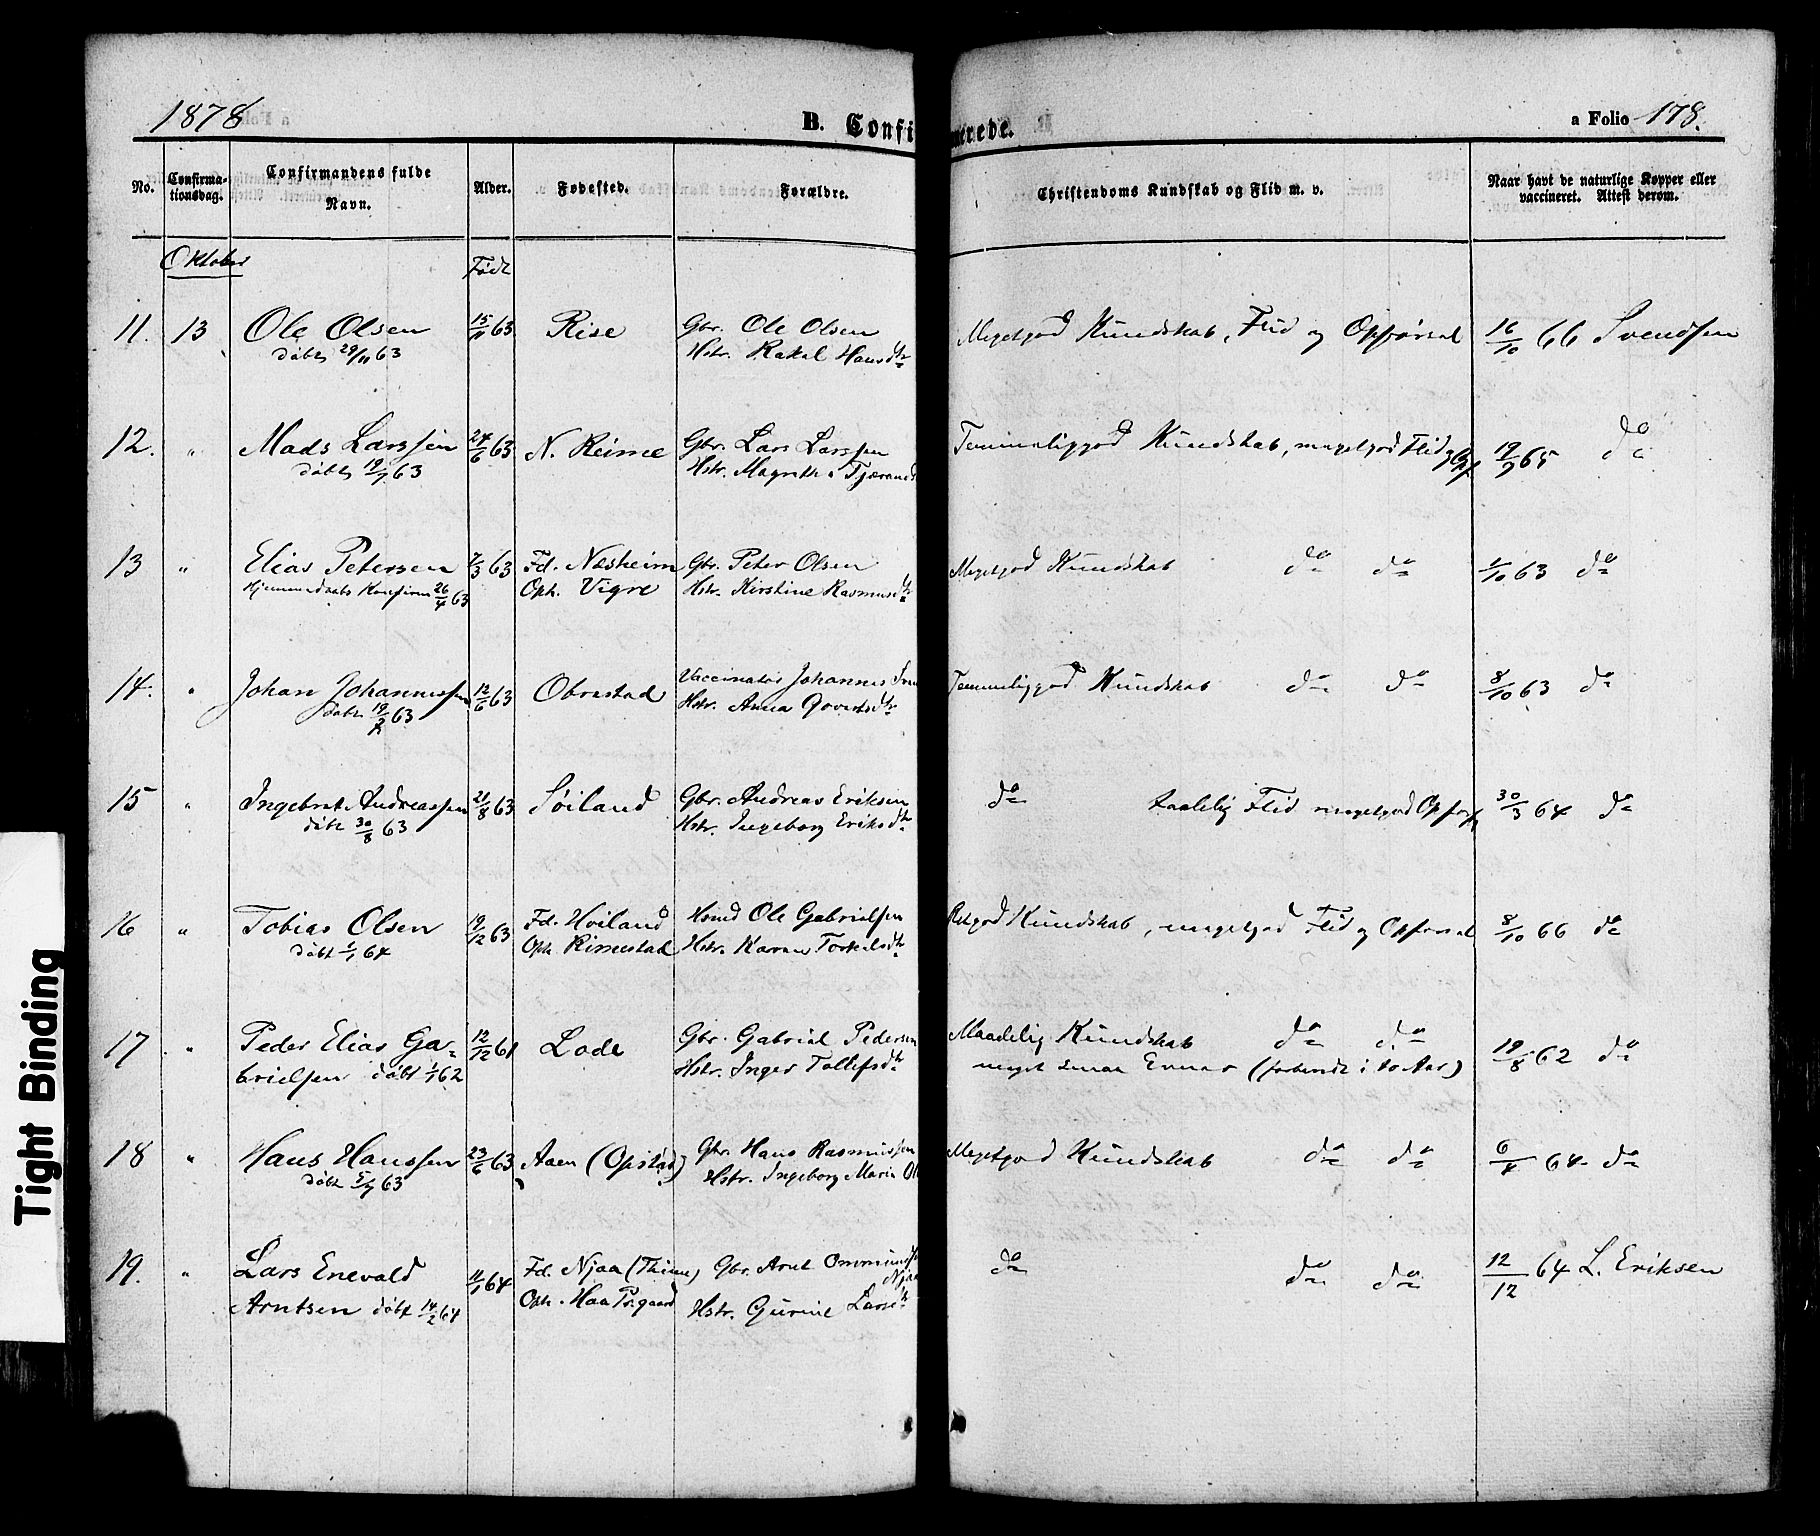 1878 B. Confirmerede. a Folio 178.
No. Confirmationsdag. Confirmandens fulde Navn. Alder. Fødested. Forældre. Christendoms Kundskab og Flid m. v. Naar havt de naturlige Kopper eller vaccineret. Attest derom.
Oktober Født
11. 13 Ole Olsen 15/11 63 Rise Gbr. Ole Olsen Megetgod Kundskab, Flid og Opførsel 16/10 66 Svendsen
døbt 29/11 63 Hstr. Rakel Hansdtr
12. " Mads Larssen 24/6 63 N. Reime Gbr. Lars Larssen Temmeliggod Kundskab, megetgod Flid og Opf 19/9 65 do
døbt 19/7 63 Hstr. Magrethe Tjærands
13 " Elias Petersen 7/3 63 Fd. Næsheim Gbr. Peter Olsen Megetgod Kundskab do do 1/10 63 do
Hjemmedaabs Konfirm 26/4 63 Oph. Vigre Hstr. Kirstine Rasmusdtr
14. " Johan Johannessen 12/6 63 Obrestad Vaccinatør Johannes Temmeliggod Kundskab do do 8/10 63 do
døbt 19/7 63 Hstr. Anna Govertsdtr
15 " Ingebret Andreassen 21/8 63 Søiland Gbr. Andreas Eriksen do taalelig Flid megetgod Opførs 30/3 64 do
døbt 30/8 63 Hstr. Ingeborg Eriksdtr
16 " Tobias Olsen 19/12 63 Fd. Hoiland Hsmd Ole Gabrielsen Retgod Kundskab, megetgod Flid og Opførsel 8/10 66 do
døbt 1/1 64 Oph. Rimestad Hstr. Karen Torkelsdtr
17. " Peder Elias Ga- 12/12 61 Lode Gbr. Gabriel Pedersen Maadelig Kundskab do do 19/8 62 do
brielsen døbt 1/1 62 Hstr. Inger Tollefsdtr meget smaa Evner (forberedt i to Aar)
18 " Hans Hanssen 23/6 63 Aaen (Opstad) Gbr. Hans Rasmussen Megetgod Kundskab do do 6/4 64 do
døbt 5/7 63 Hstr. Ingeborg Marie Ol
19. " Lars Enevald 11/1 64 Fd. Njaa (Thime) Gbr. Arnt Ommundsen Njaa do do do 12/12 64 L. Eriksen
Arntsen døbt 14/2 64 Oph. Haa Prgaard Hstr. Gurine Larsdtr
Tight Binding